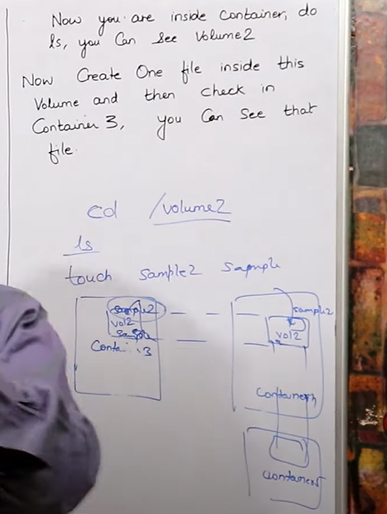 Now you are inside Container, do
ls, you Can See Volume2
Now Create One file inside this
Volume and then check in
Container 3, you Can See that
file.
cd /volume2
ls
touch sample2 sapmple
sample2
vol2
sample2
vol2